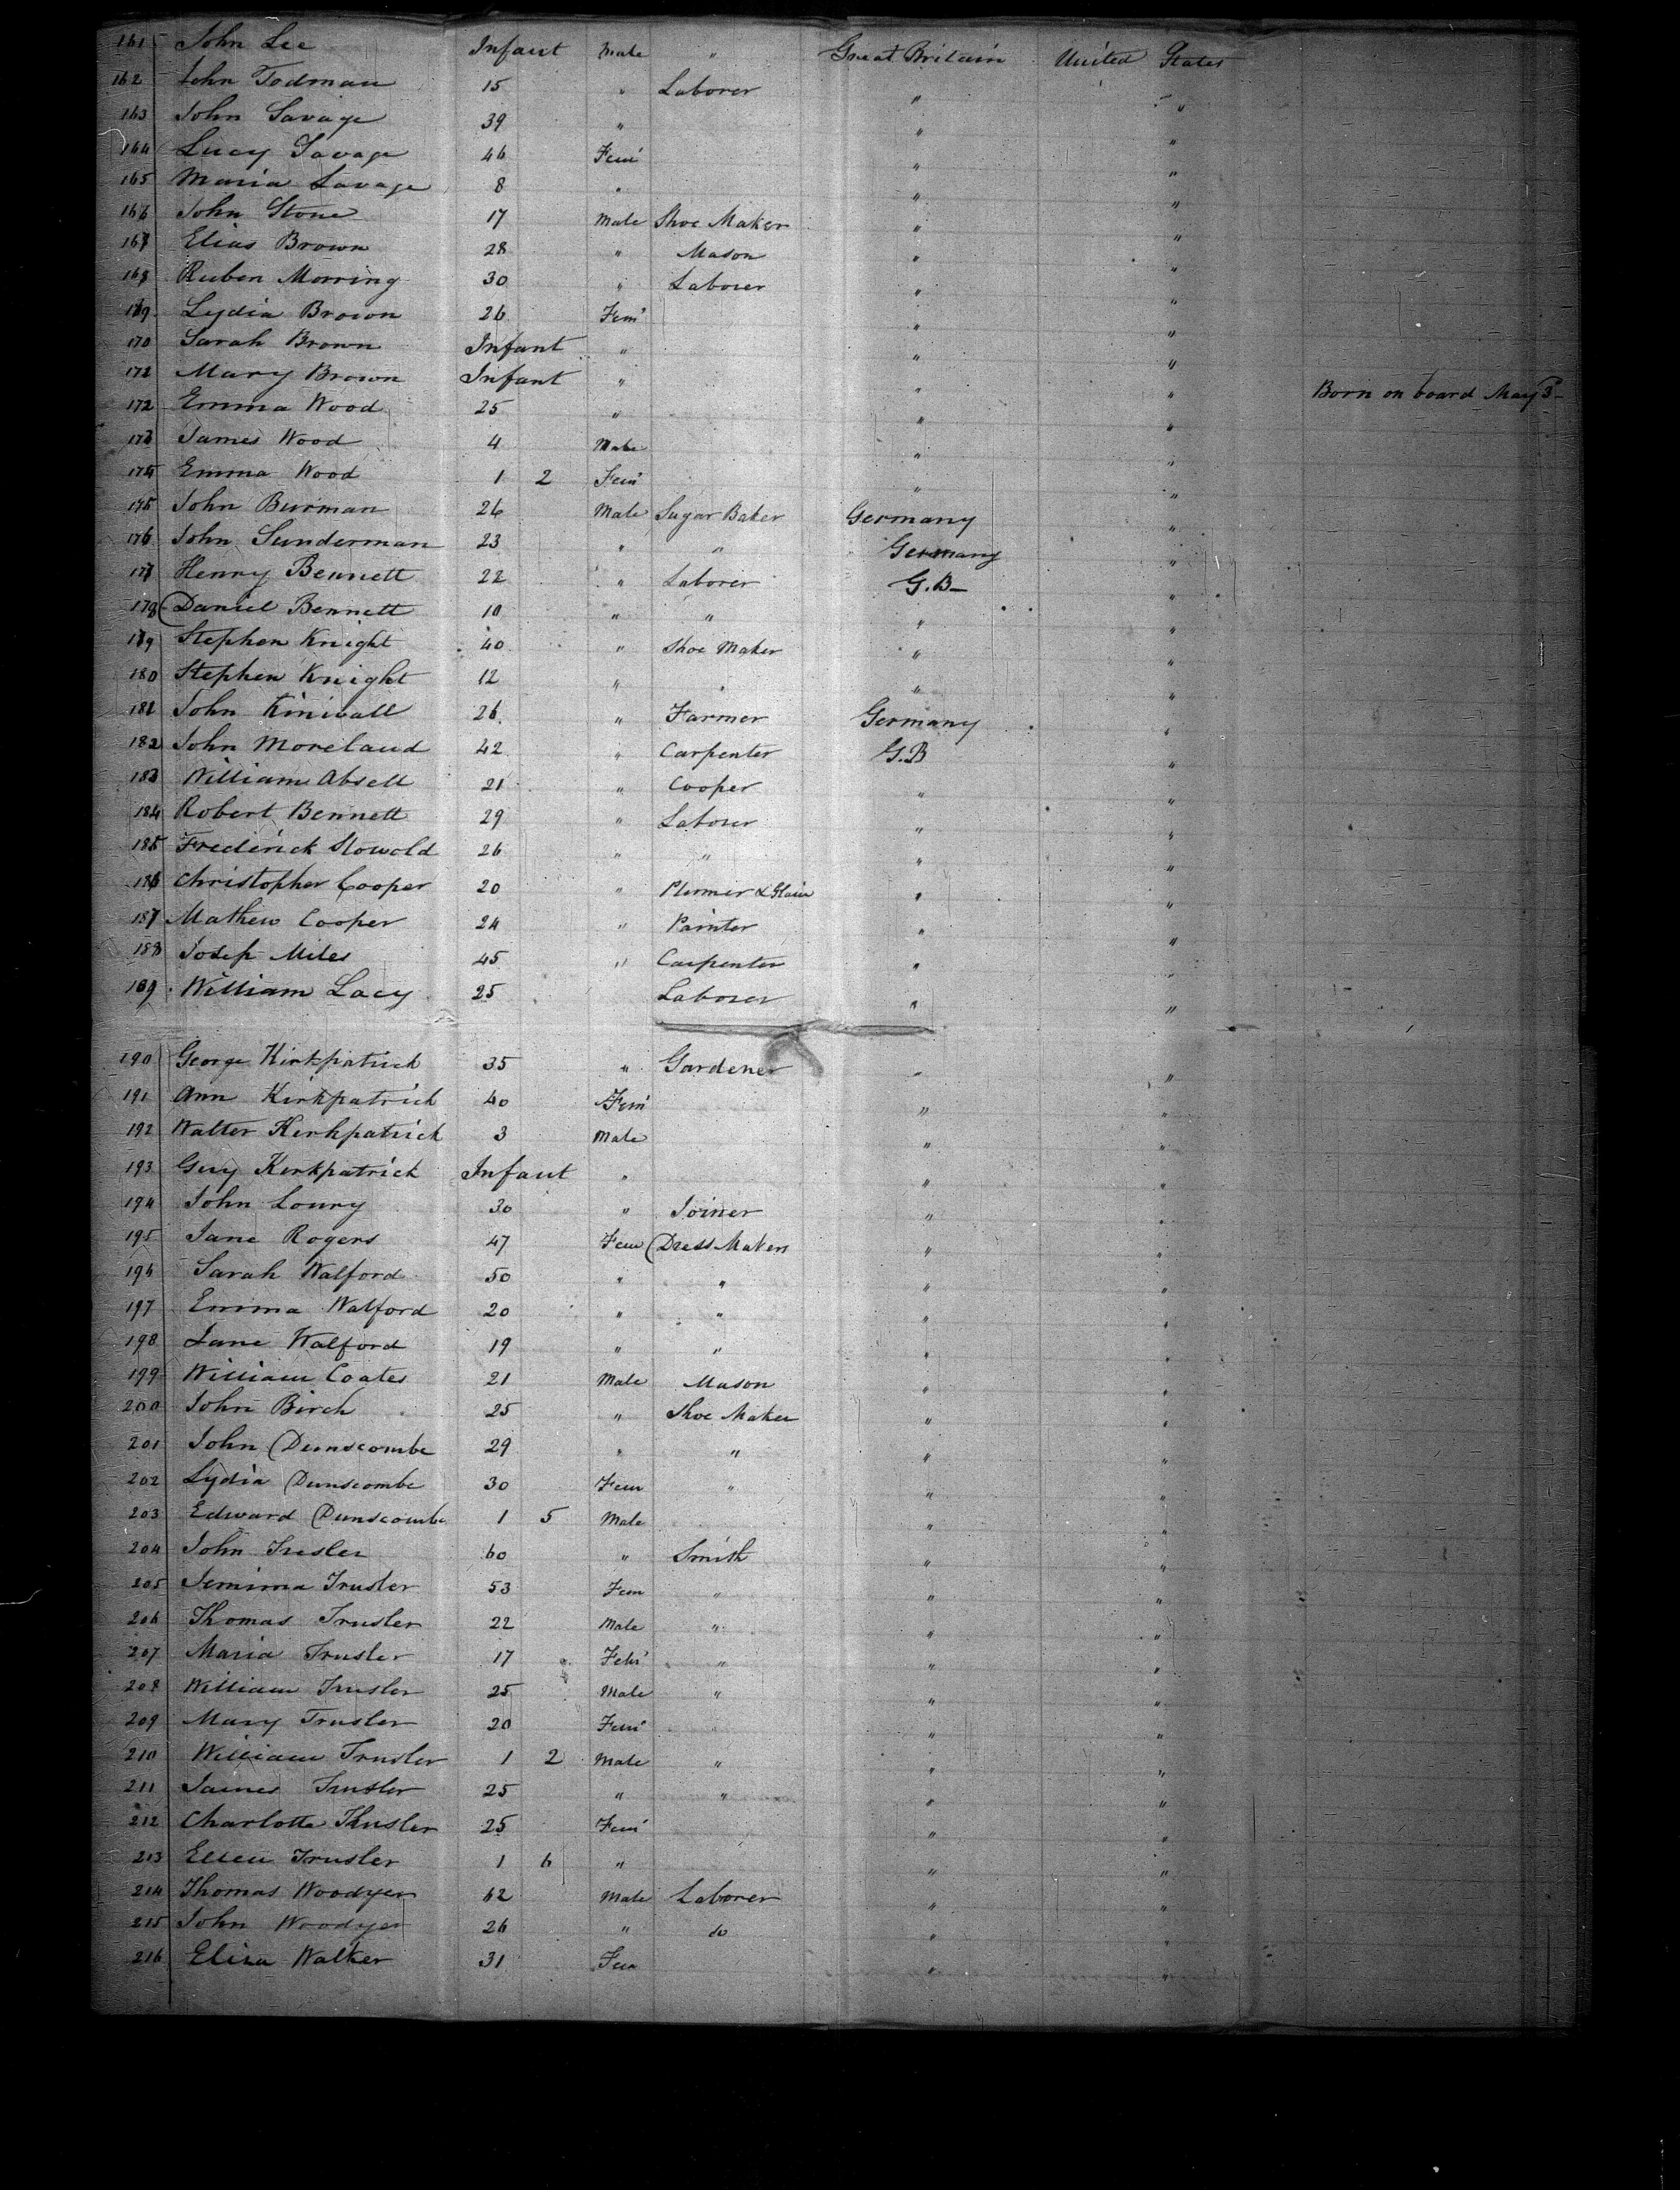 161 John Lee Infant Male " Great Britain United States
162 John Todman 15 " Laborer " "
163 John Savage 39 " " "
164 Lucy Savage 46 Fem " "
165 Maria Savage 8 " " "
166 John Stone 17 Male Shoe Maker " "
167 Elias Brown 28 " Mason " "
168 Ruben Morring 30 " Laborer " "
169 Lydia Brown 26 Fem " "
170 Sarah Brown Infant " " "
172 Mary Brown Infant " " " Born on board May 3
172 Emma Wood 25 " " "
173 James Wood 4 Male " "
174 Emma Wood 1 2 Fem " "
175 John Burman 26 Male Sugar Baker Germany "
176 John Sunderman 23 " " Germany "
177 Henry Bennett 22 " Laborer G.B- "
178 Daniel Bennett 10 " " " "
179 Stephen Knight 40 " Shoe Maker " "
180 Stephen Knight 12 " " " "
181 John 26 " Farmer Germany "
182 John Moreland 42 " Carpenter G.B "
183 William Absell 21 " Cooper " "
184 Robert Bennett 29 " Laborer " "
185 Frederick Stowold 26 " " " "
186 Christopher Cooper 20 " Plumer & " "
187 Mathew Cooper 24 " Painter " "
188 Josep Miles 45 " Carpenter " "
189 William Lacy 25 Laborer " "
190 George Kirkpatrick 35 " Gardener " "
191 Ann Kirkpatrick 40 Fem " "
192 Walter Kirkpatrick 3 Male " "
193 Guy Kirkpatrick Infant " " "
194 John Loury 30 " Joiner " "
195 Jane Rogers 47 Fem Dress Maker " "
196 Sarah Walford 50 " " " "
197 Emma Walford 20 " " " "
198 Jane Walford 19 " " " "
199 William Coates 21 Male Mason " "
200 John Birch 25 " Shoe Maker " "
201 John Dunscombe 29 " " " "
202 Lydia Dunscombe 30 Fem " " "
203 Edward Dunscombe 1 5 Male " "
204 John Trusler 60 " Smith " "
205 Jemima Trusler 53 Fem " " "
206 Thomas Trusler 22 Male " " "
207 Maria Trusler 17 Fem " " "
208 William Trusler 25 Male " " "
209 Mary Trusler 20 Fem " "
210 William Trusler 1 2 Male " " "
211 James Trusler 25 " " " "
212 Charlotte Trusler 25 Fem " "
213 Ellen Trusler 1 6 " " "
214 Thomas Woodyer 62 Male Laborer " "
215 John Woodyer 26 " do " "
216 Eliza Walker 31 Fem " "